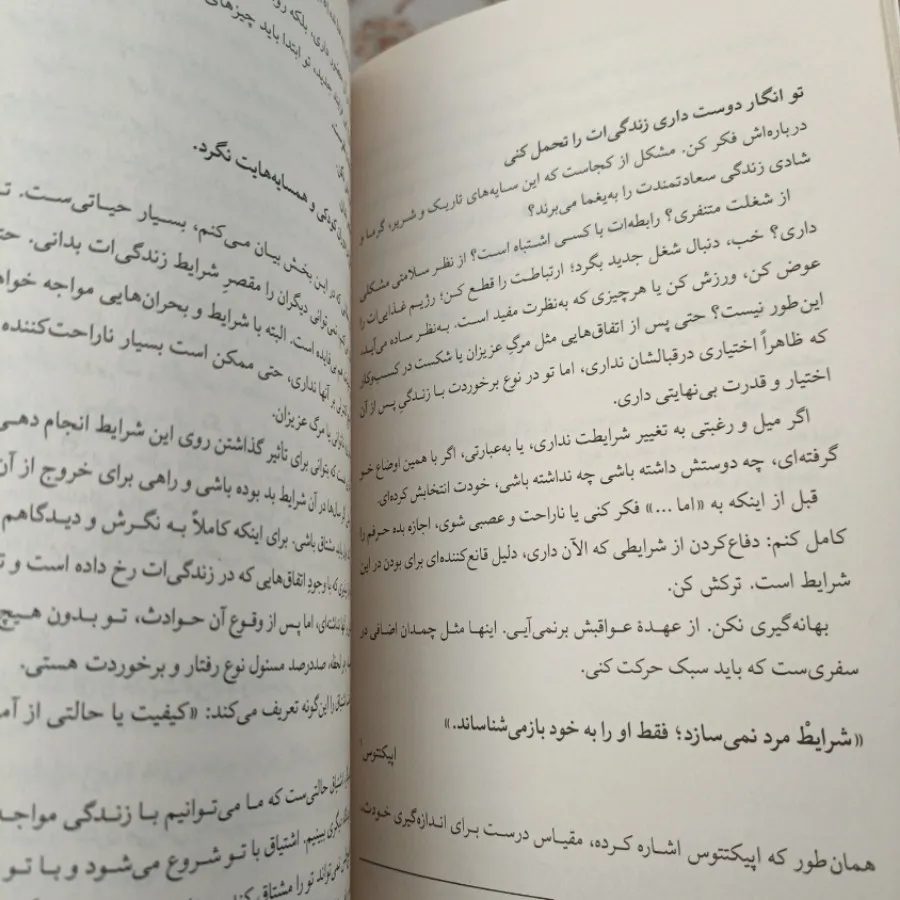 تو انگار دوست داری زندگی‌ات را تحمل کنی
درباره‌اش فکر کن. مشکل از کجاست که این سایه‌های تاریک و شریر، گرما و
شادی زندگی سعادتمندت را به‌یغما می‌برند؟
از شغلت متنفری؟ رابطه‌ات با کسی اشتباه است؟ از نظر سلامتی مشکلی
داری؟ خب، دنبال شغل جدید بگرد؛ ارتباطت را قطع کن؛ رژیم غذایی‌ات را
عوض کن، ورزش کن یا هرچیزی که به‌نظرت مفید است. به‌نظر ساده می‌آید،
این‌طور نیست؟ حتی پس از اتفاق‌هایی مثل مرگ عزیزان یا شکست در کسب‌وکار
که ظاهراً اختیاری درقبالشان نداری، اما تو در نوع برخوردت با زندگیِ پس از آن
اختیار و قدرت بی‌نهایتی داری.
اگر میل و رغبتی به تغییر شرایطت نداری، یا به‌عبارتی، اگر با همین اوضاع خو
گرفته‌ای، چه دوستش داشته باشی چه نداشته باشی، خودت انتخابش کرده‌ای.
قبل از اینکه به «اما ...» فکر کنی یا ناراحت و عصبی شوی، اجازه بده حرفم را
کامل کنم: دفاع‌کردن از شرایطی که الآن داری، دلیل قانع‌کننده‌ای برای بودن در این
شرایط است. ترکش کن.
بهانه‌گیری نکن. از عهدهٔ عواقبش برنمی‌آیی. اینها مثل چمدان اضافی در
سفری‌ست که باید سبک حرکت کنی.
«شرایطْ مرد نمی‌سازد؛ فقط او را به خود بازمی‌شناساند.»
اپیکتتوس۱
همان‌طور که اپیکتتوس اشاره کرده، مقیاس درست برای اندازه‌گیری خودت،
داری، بلکه
جدید، تو ابتدا باید چیزهای
کودکی و همسایه‌هایت نگرد.
که در این بخش بیان می‌کنم، بسیار حیاتی‌ست.
نمی‌توانی دیگران را مقصرِ شرایط زندگی‌ات بدانی.
بی‌فایده است. البته با شرایط و بحران‌هایی مواجه
بر آنها نداری، حتی ممکن است بسیار ناراحت‌کننده
یا مرگ عزیزان.
که بتوانی برای تاثیر گذاشتن روی این شرایط انجام دهی
سال‌ها در آن شرایط بد بوده باشی و راهی برای خروج از آن
مشتاق باشی. برای اینکه کاملاً به نگرش و دیدگاهم
که با وجودِ اتفاق‌هایی که در زندگی‌ات رخ داده است و
نداشته‌ای، اما پس از وقوع آن حوادث، تو بدون هیچ
صددرصد مسئول نوع رفتار و برخوردت هستی.
را این‌گونه تعریف می‌کند: «کیفیت یا حالتی از
اشتیاق حالتی‌ست که ما می‌توانیم با زندگی
دیگری ببینیم. اشتیاق با تو شروع می‌شود و با تو
نمی‌تواند تو را مشتاق